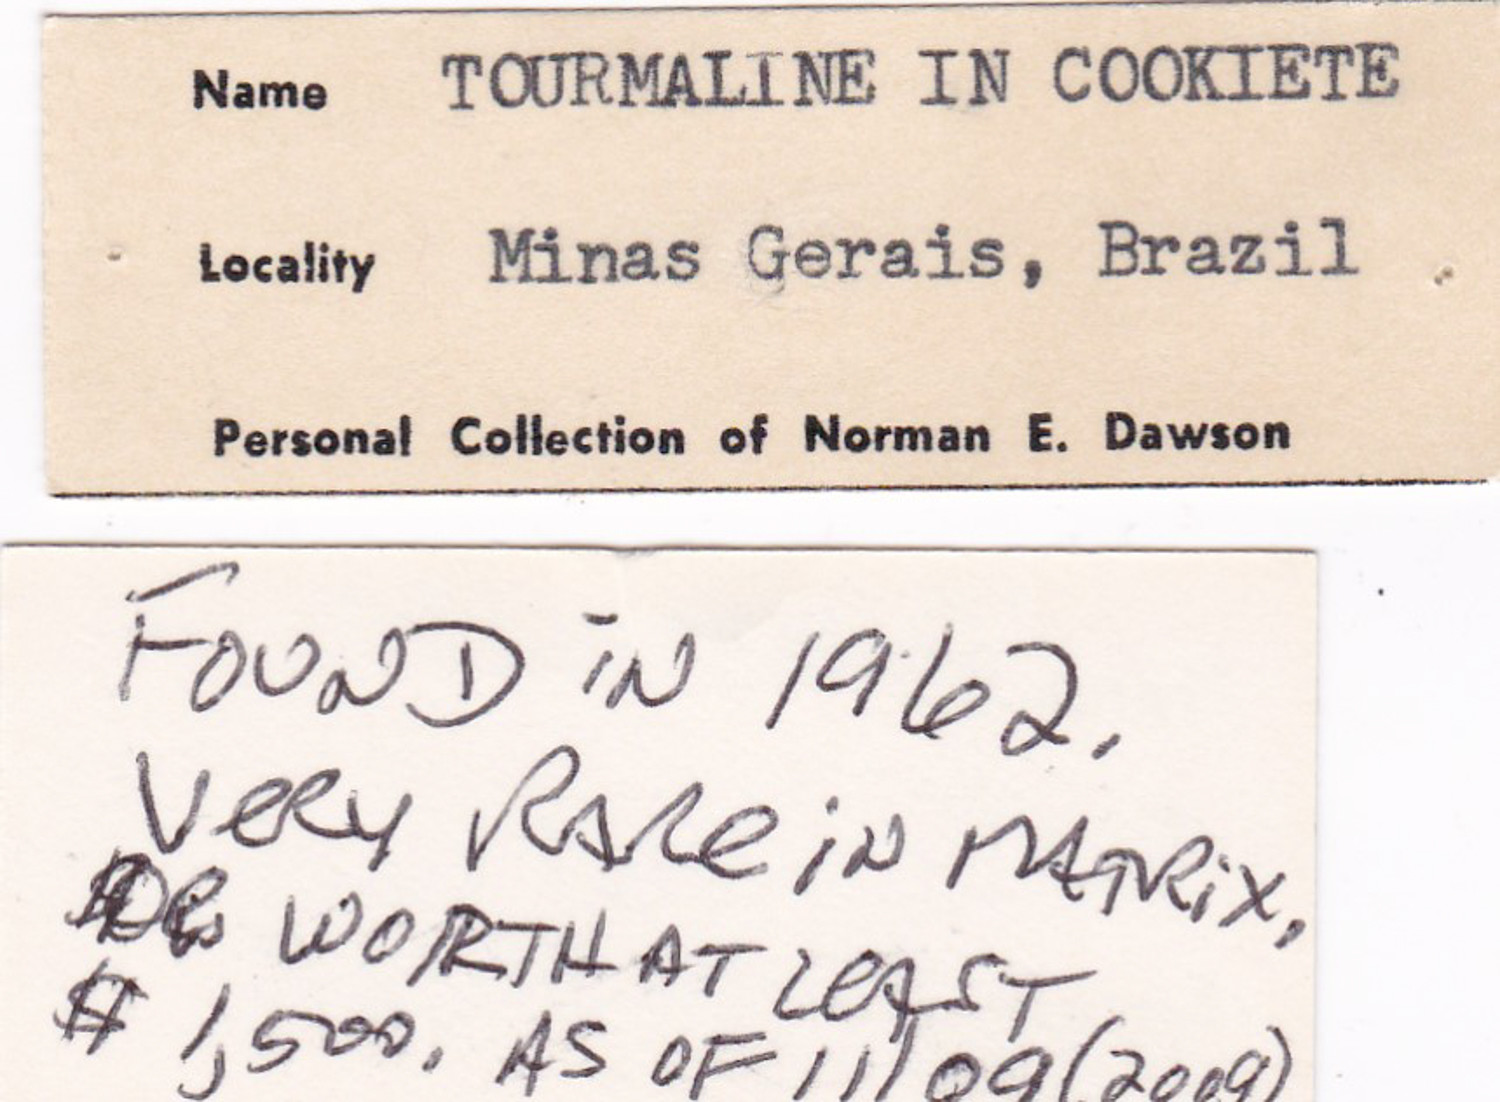 Name TOURMALINE IN COOKIETE
Locality Minas Gerais, Brazil
Personal Collection of Norman E. Dawson
FOUND iN 1962.
VeRy RARe iN MATRiX,
WORTH AT LeAST
$ 1,500. AS OF 11/09 (2009)